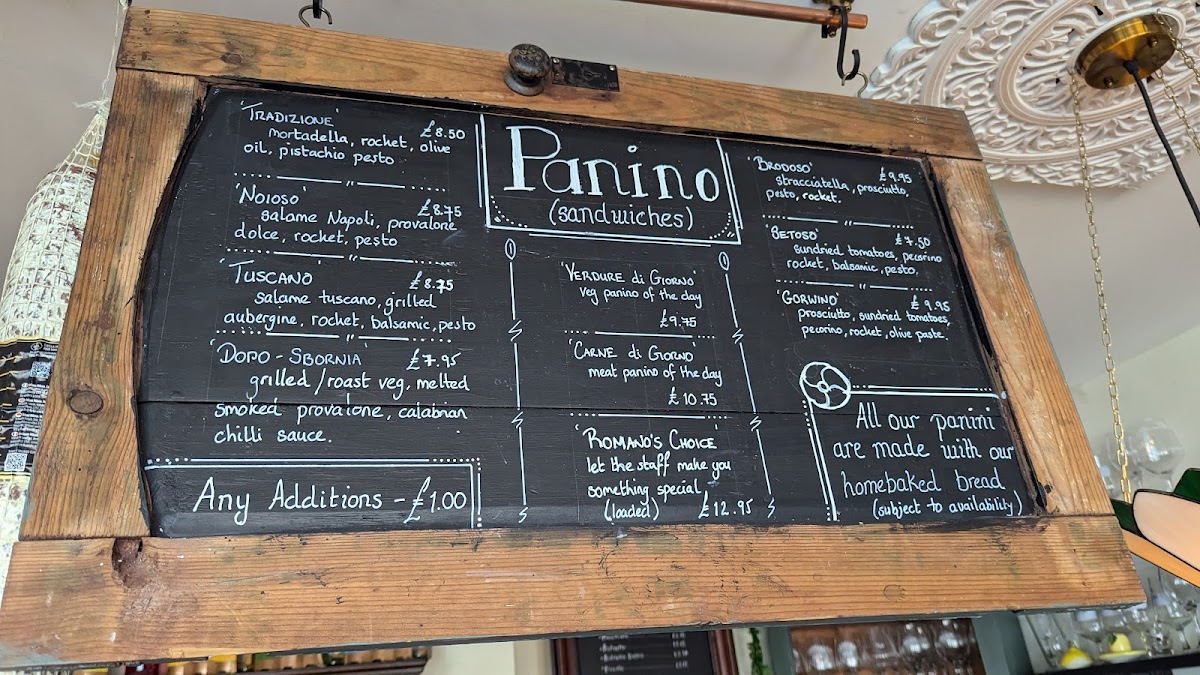 'TRADIZIONE' £8.50
mortadella, rocket, olive
oil, pistachio pesto
'NOIOSO' £8.75
salame Napoli, provalone
dolce, rocket, pesto
'TUSCANO' £8.75
salame tuscano, grilled
aubergine, rocket, balsamic, pesto
'DOPO - SBORNIA' £7.95
grilled/roast veg, melted
smoked provalone, calabrian
chilli sauce.
Any Additions - £1.00
Panino
(sandwiches)
'VERDURE di GIORNO'
veg panino of the day
£9.75
'CARNE di GIORNO'
meat panino of the day
£10.75
'ROMANO'S CHOICE'
let the staff make you
something special
(loaded) £12.95
'BRODOSO' £9.95
stracciatella, prosciutto,
pesto, rocket.
'SETOSO' £7.50
sundried tomatoes, pecorino
rocket, balsamic, pesto.
'GORWINO' £9.95
prosciutto, sundried tomatoes,
pecorino, rocket, olive paste.
All our panini
are made with our
homebaked bread
(subject to availability)